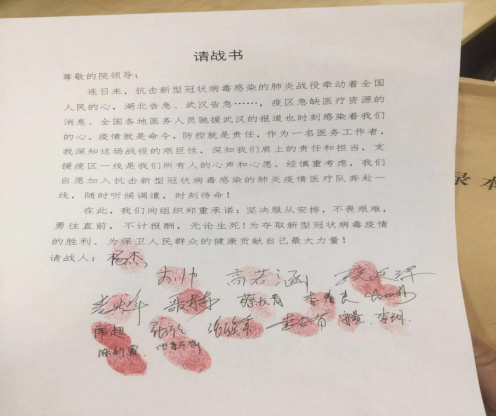 请战书
尊敬的院领导：
连日来，抗击新型冠状病毒感染的肺炎战役牵动着全国
人民的心，湖北告急、武汉告急……，疫区急缺医疗资源的
消息、全国各地医务人员驰援武汉的报道也时刻感染着我们
的心。疫情就是命令，防控就是责任，作为一名医务工作者，
我深知这场战役的艰巨性，深知我们肩上的责任和担当，支
援疫区一线是我们所有人的心声和心愿。经慎重考虑，我们
自愿加入抗击新型冠状病毒感染的肺炎疫情医疗队奔赴一
线，随时听候调遣，时刻待命！
在此，我们向组织郑重承诺：坚决服从安排，不畏艰难，
勇往直前，不计报酬，无论生死!为夺取新型冠状病毒疫情
的胜利、为保卫人民群众的健康贡献自己最大力量！
请战人： 杨杰
高若涵
录